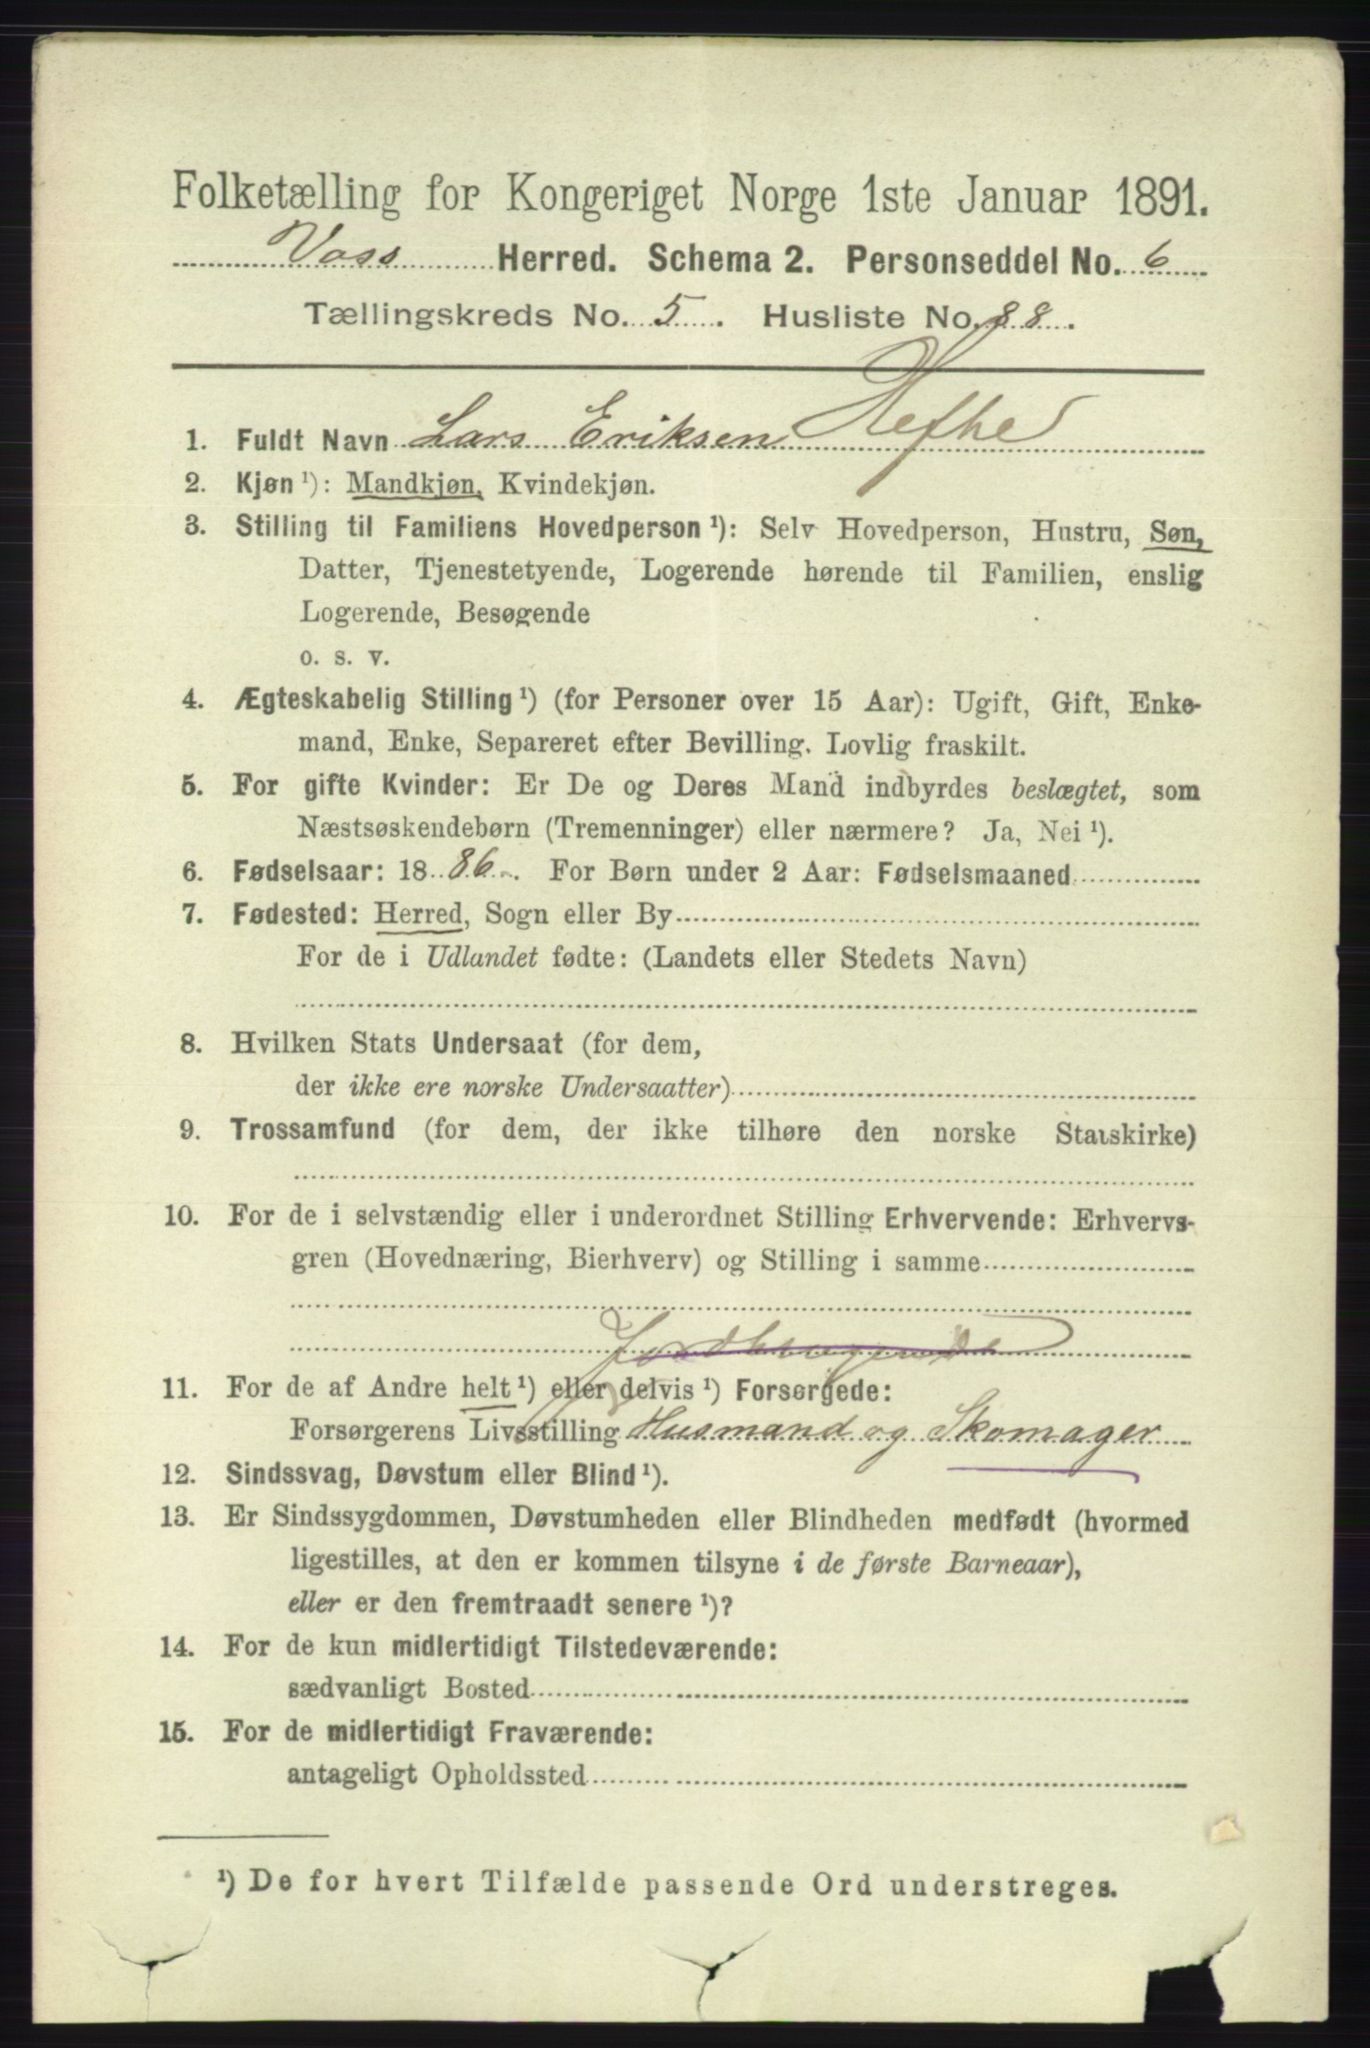 Folketælling for Kongeriget Norge 1ste Januar 1891.
Voss Herred. Schema 2. Personseddel No. 6
Tællingskreds No. 5. Husliste No. 88.
1. Fuldt Navn Lars Eriksen Hefhe
2. Kjøn ¹): Mandkjøn, Kvindekjøn.
3. Stilling til Familiens Hovedperson ¹): Selv Hovedperson, Hustru, Søn,
Datter, Tjenestetyende, Logerende hørende til Familien, enslig
Logerende, Besøgende
o. s. v.
4. Ægteskabelig Stilling ¹) (for Personer over 15 Aar): Ugift, Gift, Enke-
mand, Enke, Separeret efter Bevilling. Lovlig fraskilt.
5. For gifte Kvinder: Er De og Deres Mand indbyrdes beslægtet, som
Næstsøskendebørn (Tremenninger) eller nærmere? Ja, Nei ¹).
6. Fødselsaar: 1886. For Børn under 2 Aar: Fødselsmaaned
7. Fødested: Herred, Sogn eller By
For de i Udlandet fødte: (Landets eller Stedets Navn)
8. Hvilken Stats Undersaat (for dem,
der ikke ere norske Undersaatter)
9. Trossamfund (for dem, der ikke tilhøre den norske Statskirke)
10. For de i selvstændig eller i underordnet Stilling Erhvervende: Erhvervs-
gren (Hovednæring, Bierhverv) og Stilling i samme
Jordbrugende
11. For de af Andre helt ¹) eller delvis ¹) Forsørgede:
Forsørgerens Livsstilling Husmand og Skomager
12. Sindssvag, Døvstum eller Blind ¹).
13. Er Sindssygdommen, Døvstumheden eller Blindheden medfødt (hvormed
ligestilles, at den er kommen tilsyne i de første Barneaar),
eller er den fremtraadt senere ¹)?
14. For de kun midlertidigt Tilstedeværende:
sædvanligt Bosted
15. For de midlertidigt Fraværende:
antageligt Opholdssted
¹) De for hvert Tilfælde passende Ord understreges.